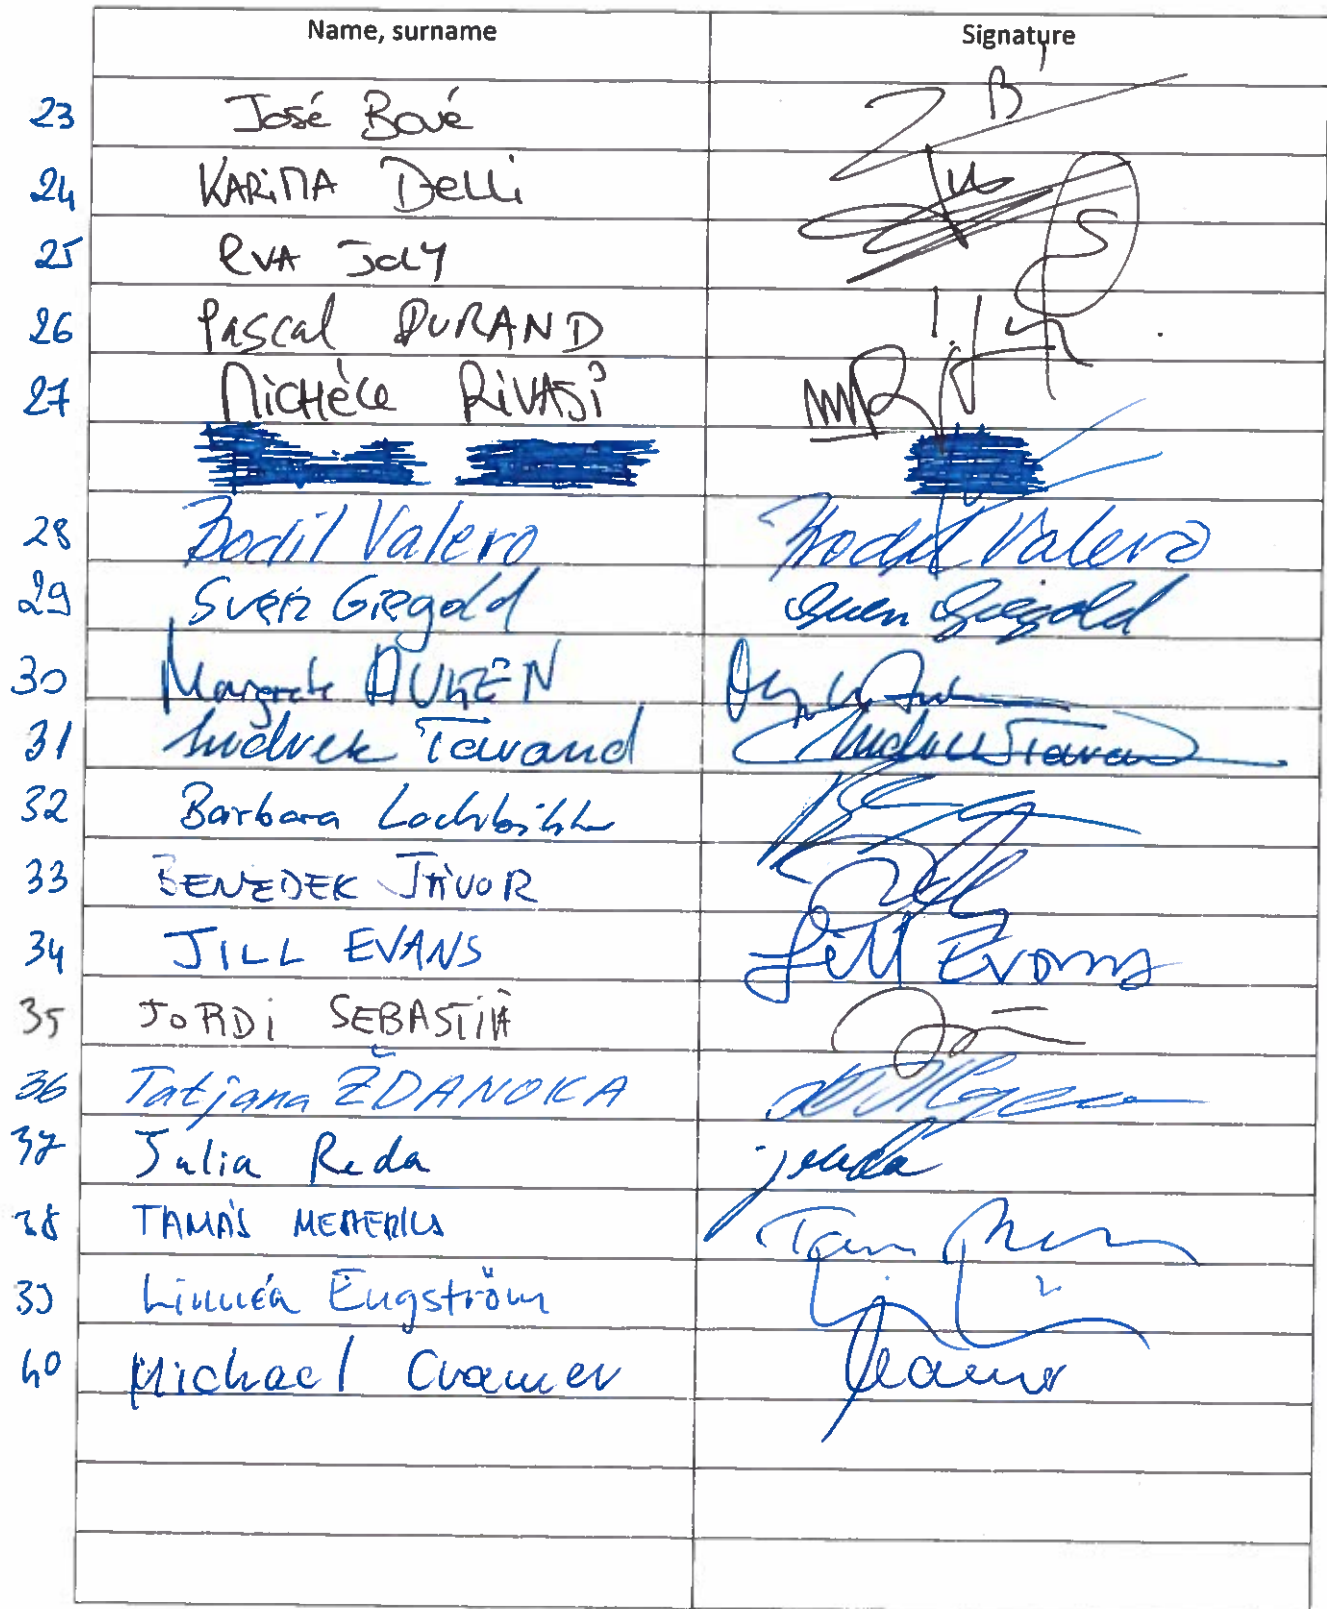 Name, surname Signature
23 José Bové
24 KARiMA Delli
25 EVA JOLY
26 Pascal DURAND
27 MicHèle RiVASi MR
28 Bodil Valero Bodil Valero
29 Sven Giegold Sven Giegold
30 Margrete AUKEN
31 Indrek Tarand Indrek Tarand
32 Barbara Lochbihler
33 BENEDEK JÁVOR
34 JILL EVANS Jill Evans
35 JORDi SEBASTIÀ
36 Tatjana ŽDANOKA
37 Julia Reda jreda
38 TAMÁS MESZERICS
39 Linnéa Engström
40 Michael Cramer Cramer